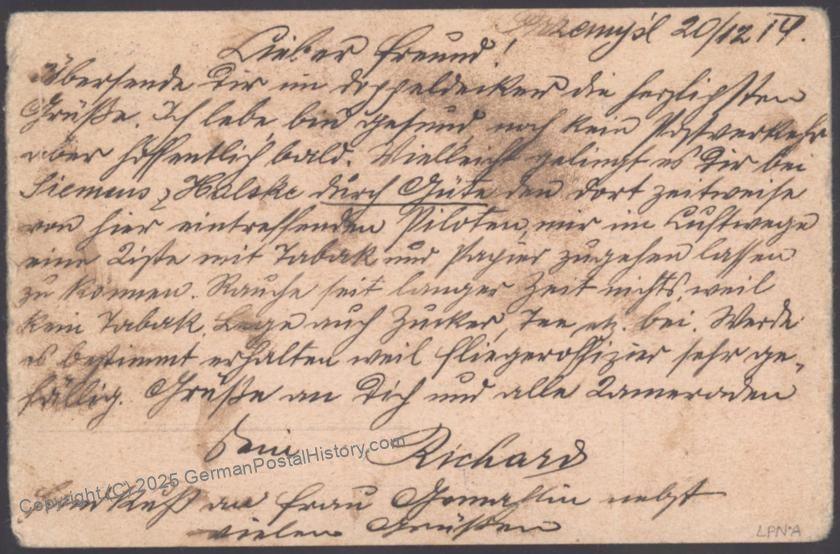 Przemyśl 20/12 14.
Lieber Freund!
Übersende Dir im Doppeldecker die herzlichsten
Grüße. Ich lebe bin gesund noch kein Postverkehr
aber hoffentlich bald. Vielleicht gelingt es Dir bei
Siemens & Halske durch Güte den dort zeitweise
von hier eintreffenden Piloten, mir im Luftwege
eine Kiste mit Tabak und Papier zugehen lassen
zu können. Rauche seit langer Zeit nichts, weil
kein Tabak. Lege auch Zucker, Tee, etz. bei. Werde
es bestimmt erhalten weil Fliegeroffizier sehr ge-
fällig. Grüße an Dich und alle Kameraden
Dein Richard
Handkuß an Frau Gemahlin nebst
vielen Grüßen
Copyright (C) 2025 GermanPostalHistory.com
LPN·A